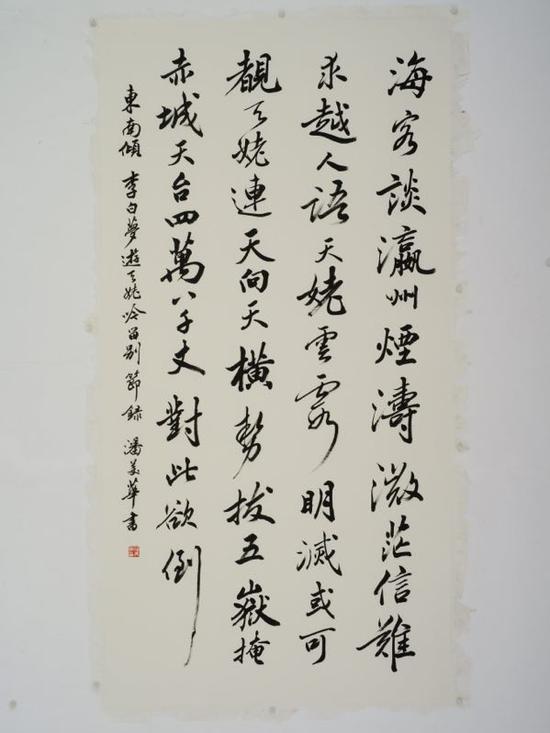 海客談瀛州煙濤微茫信難
求越人語天姥雲霞明滅或可
覩天姥連天向天橫勢拔五嶽掩
赤城天台四萬八千丈對此欲倒
東南傾 李白夢遊天姥吟留別 節錄 潘美華書